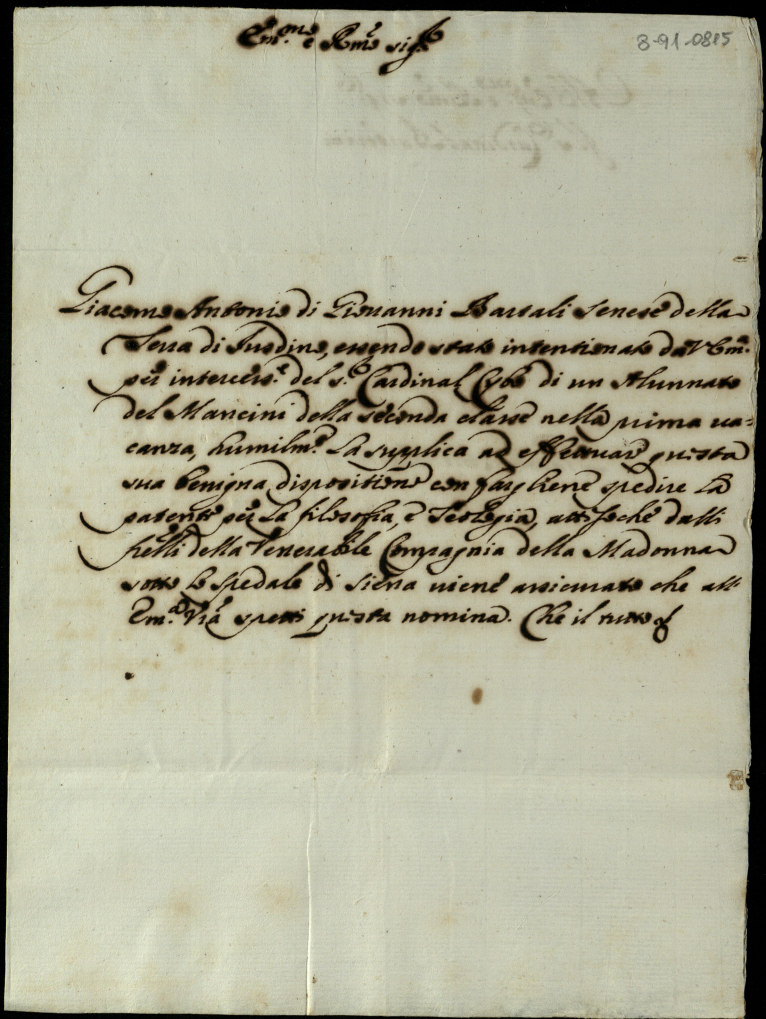 Em.mo e Rmo sigre
3-91-0815
Giacomo Antonio di Giovanni Bartali Senese della
Terra di, essendo stato intentionato da V Em.a
per interces.e del s.r Cardinal Cybo di un Alunnato
del Mancini della seconda classe nella prima ua-
canza, humilm.e La supplica ad effettuare questa
sua benigna dispositione con fargliene spedire La
patente per La filosofia, e Teologia, attesoche dalli
frelli della Venerabile Compagnia della Madonna
sotto Lo spedale di Siena viene assicurato che all'
Em.a Vra spetti questa nomina. Che il tutto